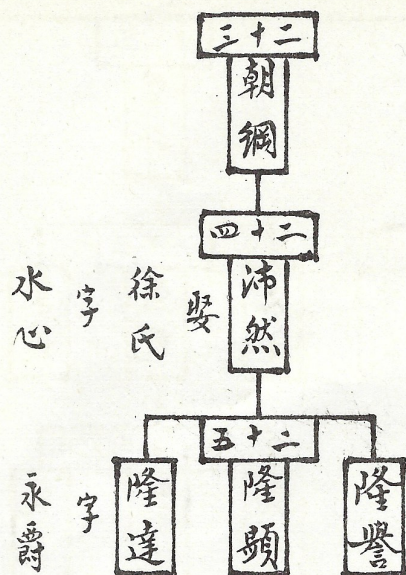 三十二
朝綱
四十二
沛然
娶
徐氏
字
水心
五十二
隆譽
隆顯
隆達
字
永爵